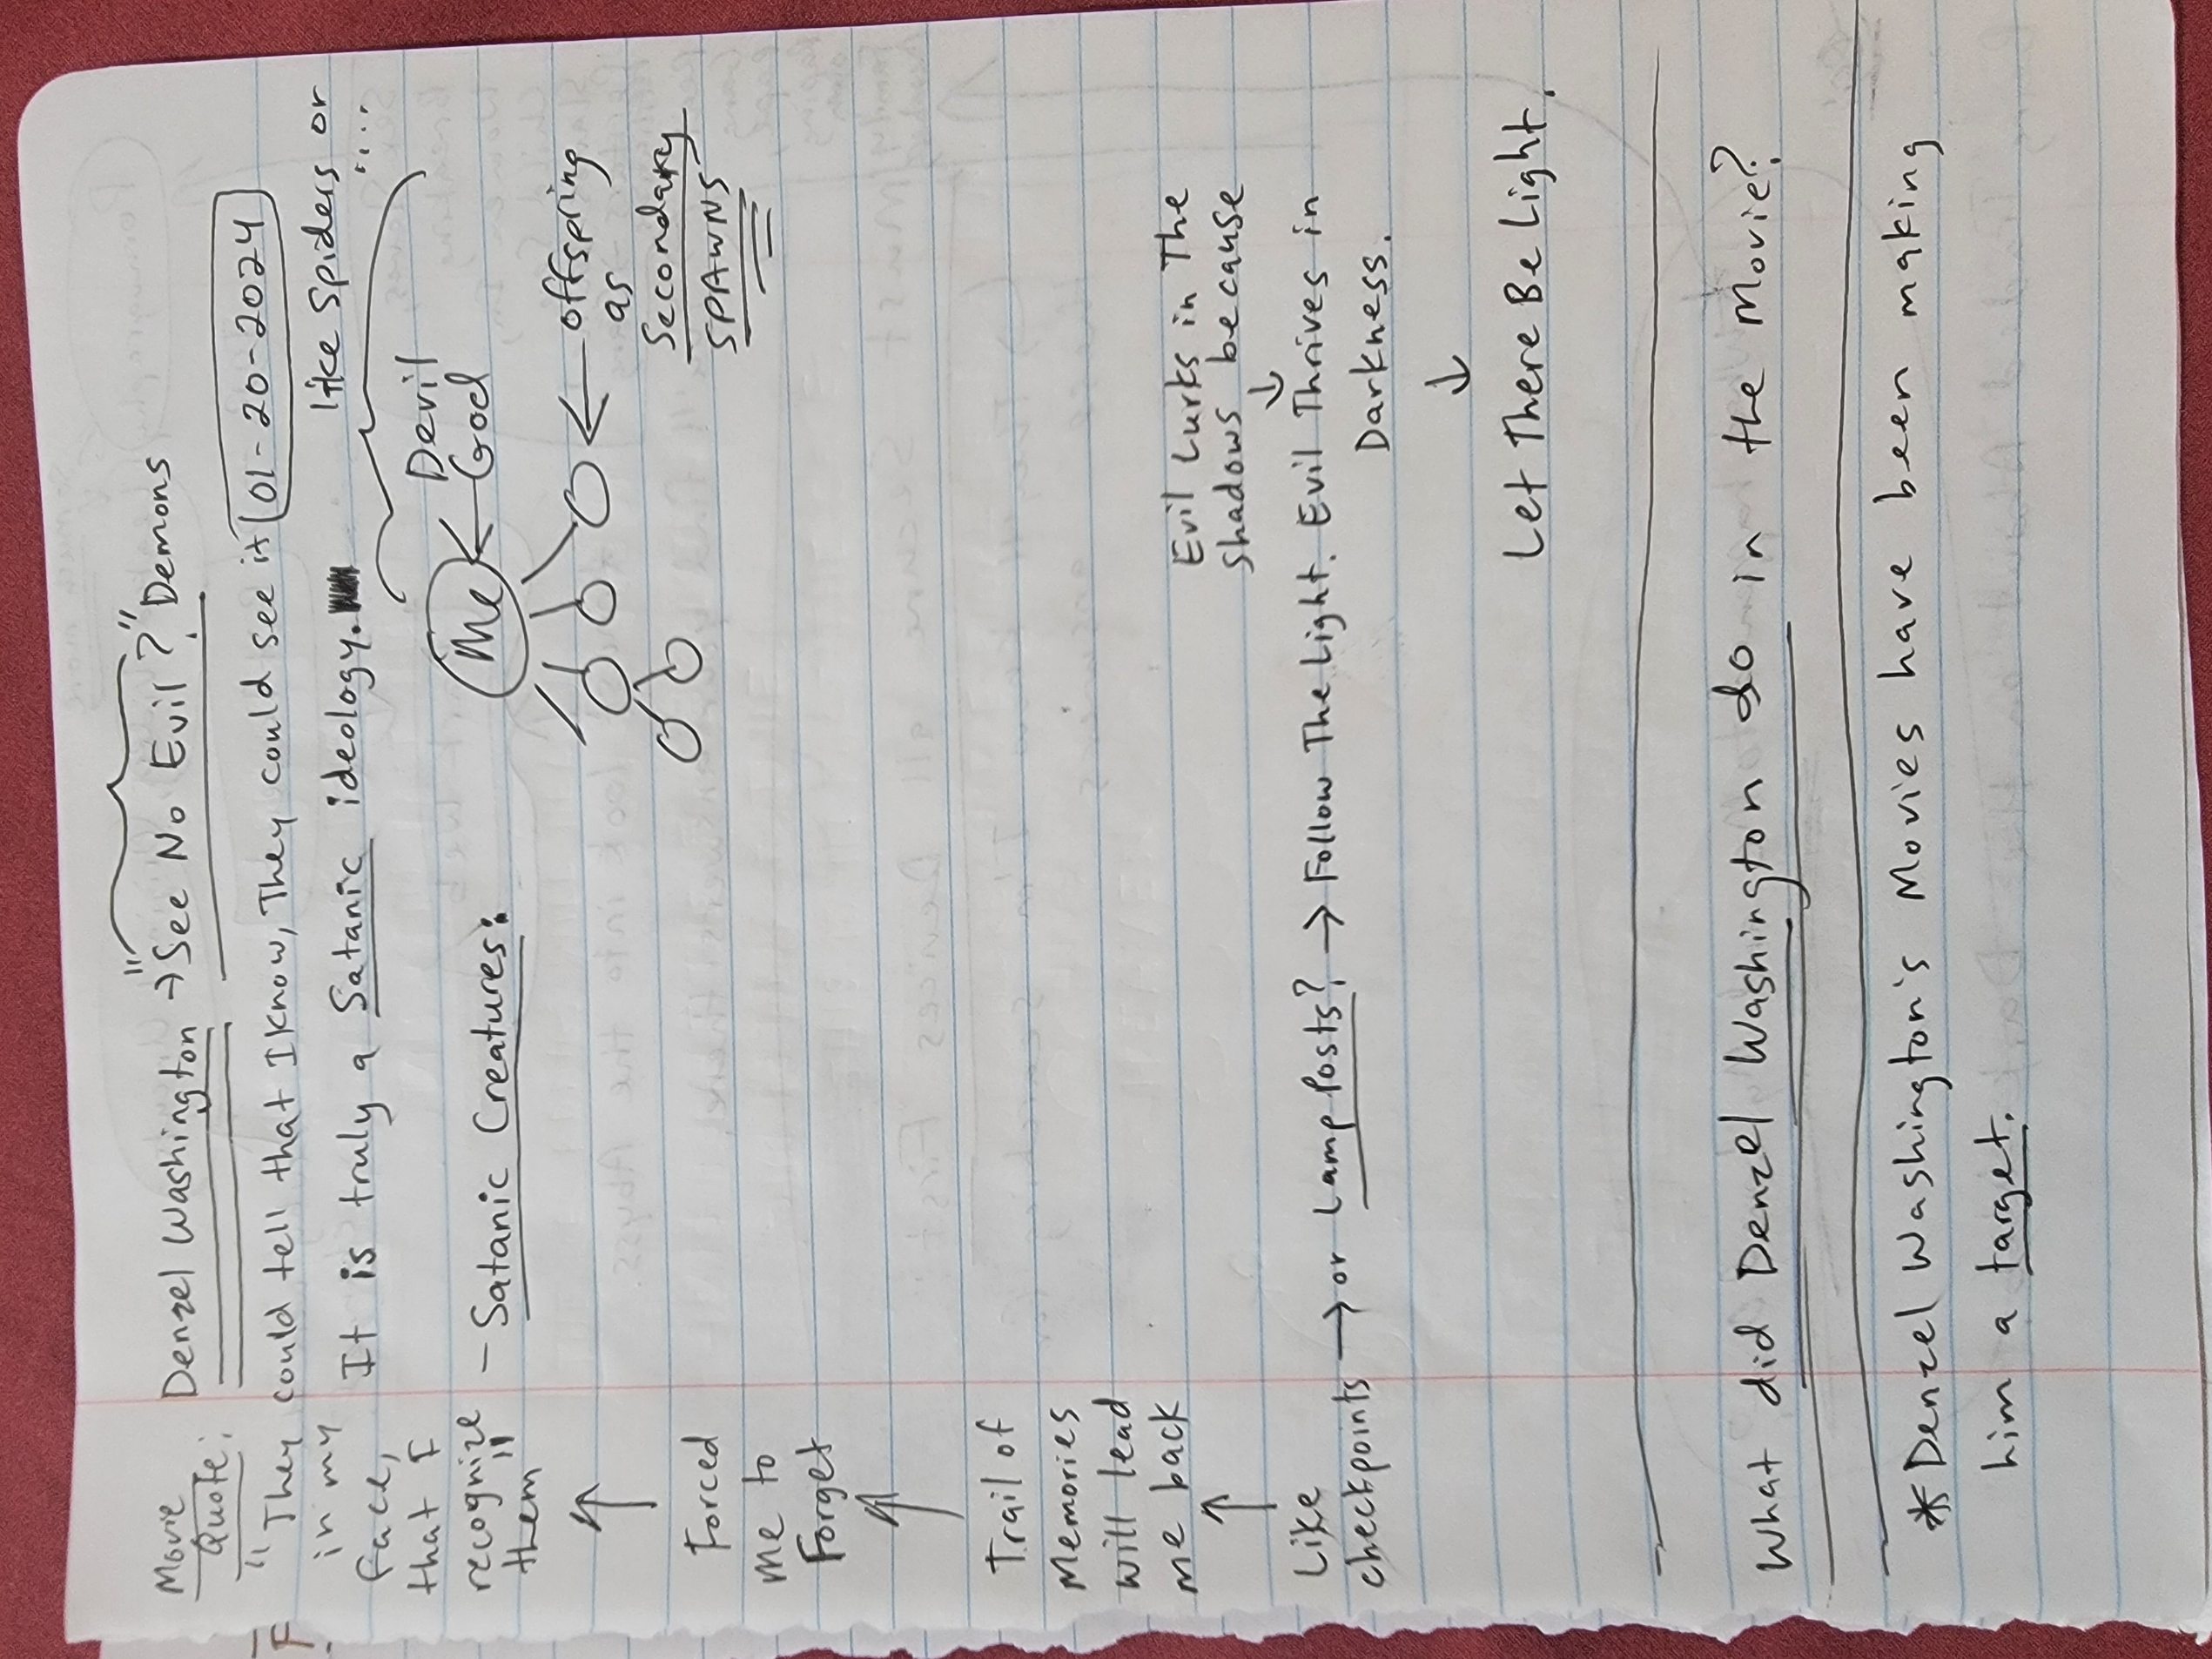 Movie
Quote:
Denzel Washington → "See No Evil?" Demons
"They could tell that I know, They could see it 01-20-2024
in my
face,
that I
recognize
them"
It is truly a Satanic ideology.
like Spiders or
"....
- Satanic Creatures:
Me ← Devil
← God
← offspring
as
Secondary
SPAWNS
↑
Forced
me to
Forget
↑
Trail of
Memories
will lead
me back
↑
Like
checkpoints → or Lamp Posts? → Follow The Light. Evil Thrives in
Darkness.
Evil Lurks in The
Shadows because
↓
↓
Let There Be Light.
What did Denzel Washington do in the Movie?
* Denzel Washington's Movies have been making
him a target.